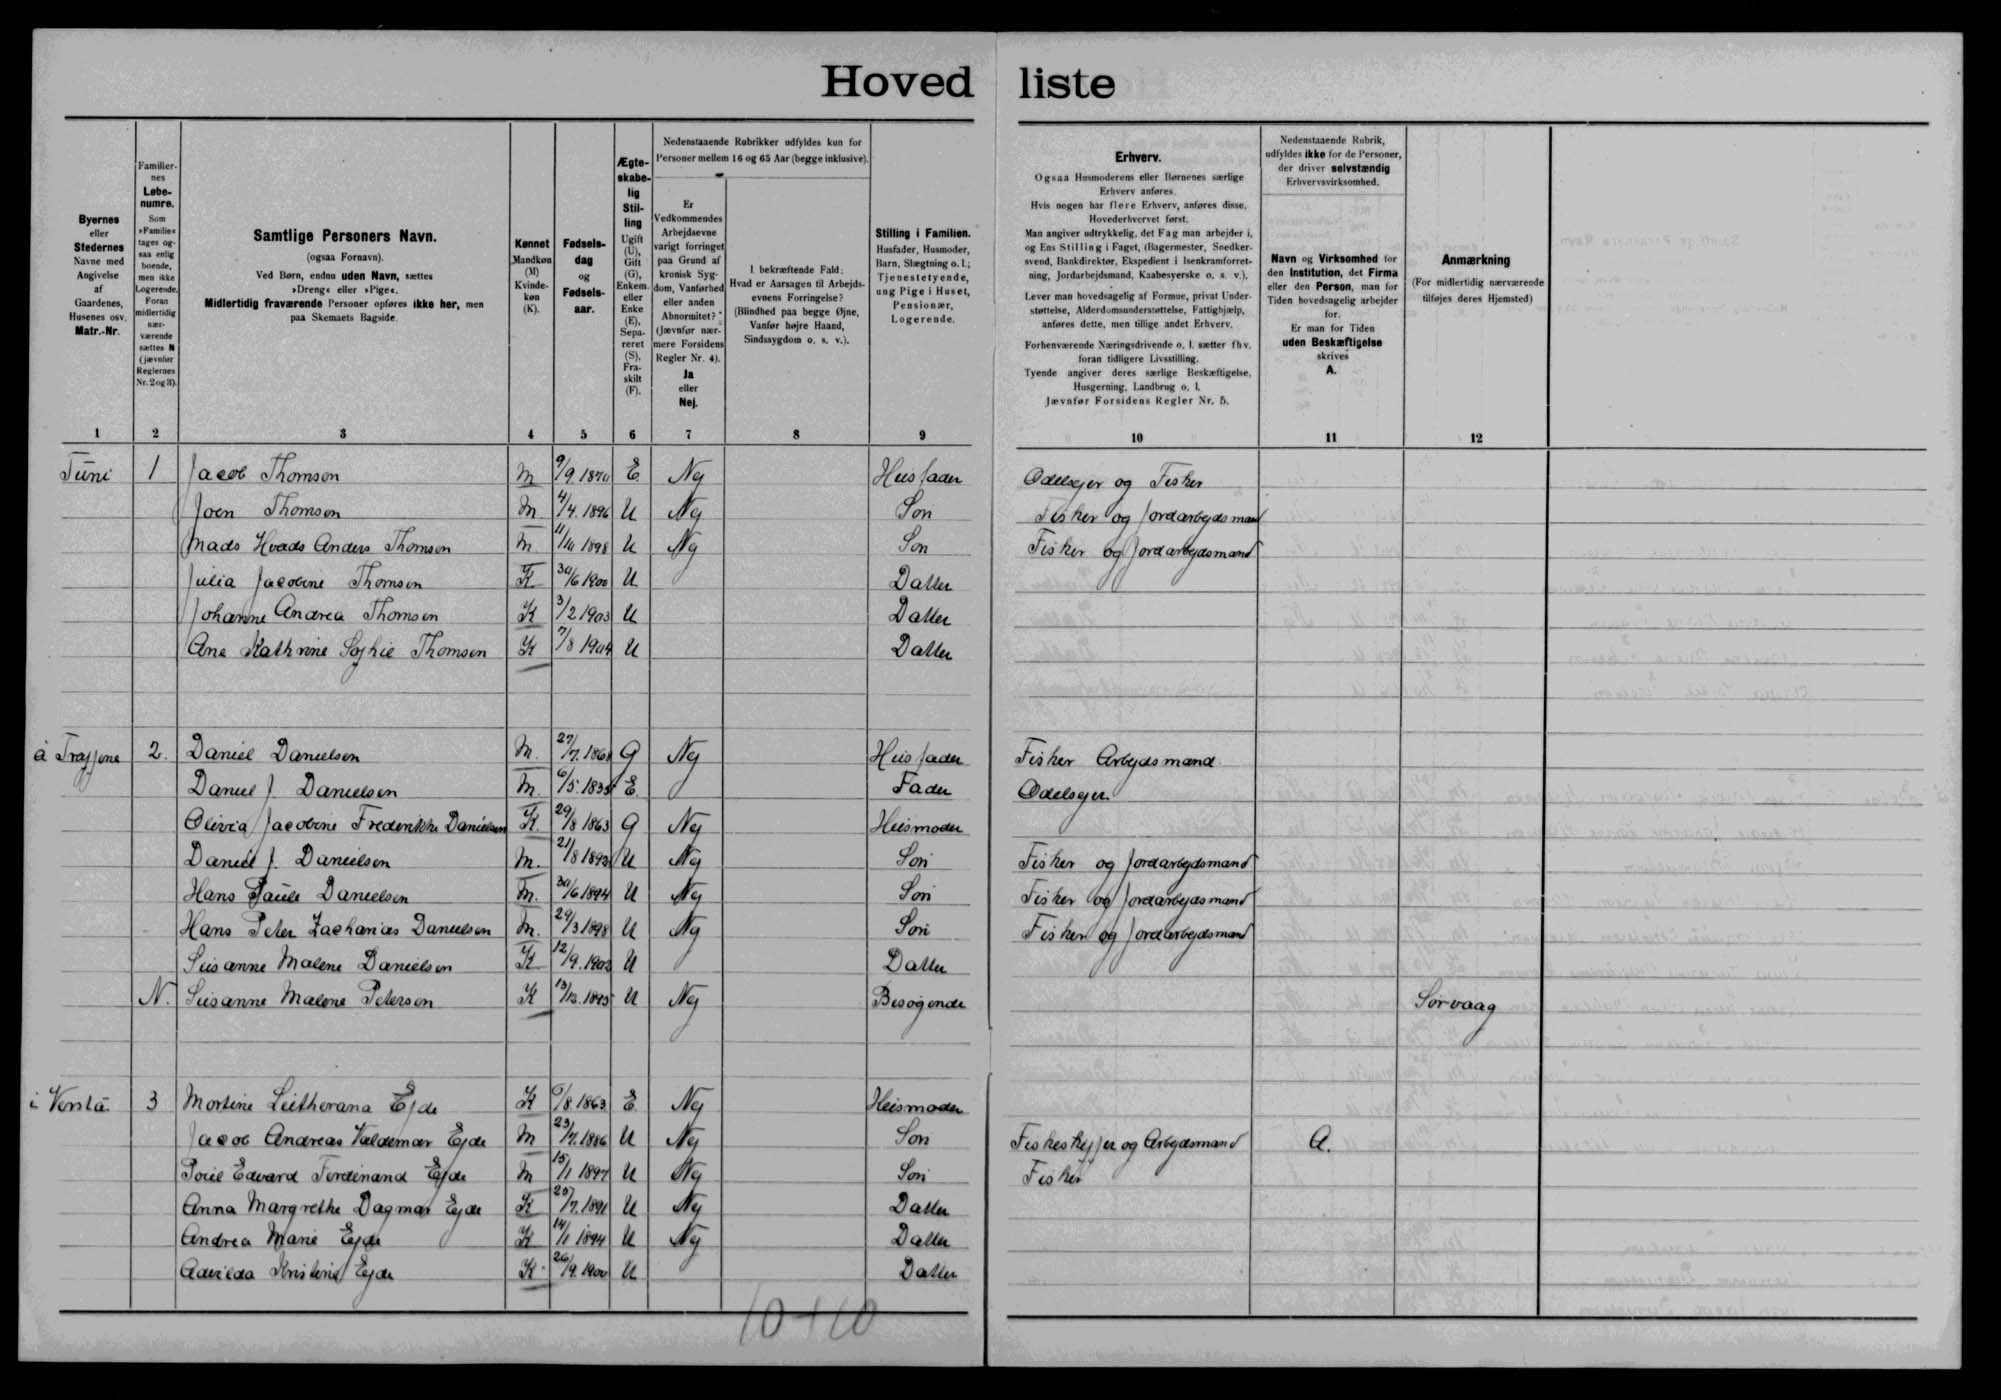 Hovedliste
Byernes
eller
Stedernes
Navne med
Angivelse
af
Gaardenes,
Husenes osv.
Matr.-Nr.
Familier-
nes
Løbe-
numre.
Som
»Familie«
tages og-
saa enlig
boende,
men ikke
Logerende.
Foran
midlertidig
nær-
værende
sættes N
(jævnfør
Reglernes
Nr. 2 og 3).
Samtlige Personers Navn.
(ogsaa Fornavn).
Ved Børn, endnu uden Navn, sættes
»Dreng« eller »Pige«.
Midlertidig fraværende Personer opføres ikke her, men
paa Skemaets Bagside.
Kønnet
Mandkøn
(M)
Kvinde-
køn
(K).
Fødsels-
dag
og
Fødsels-
aar.
Ægte-
skabe-
lig
Stil-
ling
Ugift
(U),
Gift
(G),
Enkem.
eller
Enke
(E),
Sepa-
reret
(S),
Fra-
skilt
(F).
Nedenstaaende Rubrikker udfyldes kun for
Personer mellem 16 og 65 Aar (begge inklusive).
Er
Vedkommendes
Arbejdsevne
varigt forringet
paa Grund af
kronisk Syg-
dom, Vanførhed
eller anden
Abnormitet?
(Jævnfør nær-
mere Forsidens
Regler Nr. 4).
Ja
eller
Nej.
I bekræftende Fald:
Hvad er Aarsagen til Arbejds-
evnens Forringelse?
(Blindhed paa begge Øjne,
Vanfør højre Haand,
Sindssygdom o. s. v.).
Stilling i Familien.
Husfader, Husmoder,
Barn, Slægtning o. l.;
Tjenestetyende,
ung Pige i Huset,
Pensionær,
Logerende.
Erhverv.
Ogsaa Husmoderens eller Børnenes særlige
Erhverv anføres.
Hvis nogen har flere Erhverv, anføres disse,
Hovederhvervet først.
Man angiver udtrykkelig, det Fag man arbejder i,
og Ens Stilling i Faget, (Bagermester, Snedker-
svend, Bankdirektør, Ekspedient i Isenkramforret-
ning, Jordarbejdsmand, Kaabesyerske o. s. v.).
Lever man hovedsagelig af Formue, privat Under-
støttelse, Alderdomsunderstøttelse, Fattighjælp,
anføres dette, men tillige andet Erhverv.
Forhenværende Næringsdrivende o. l. sætter fhv.
foran tidligere Livsstilling.
Tyende angiver deres særlige Beskæftigelse,
Husgerning, Landbrug o. l.
Jævnfør Forsidens Regler Nr. 5.
Nedenstaaende Rubrik,
udfyldes ikke for de Personer,
der driver selvstændig
Erhvervsvirksomhed.
Navn og Virksomhed for
den Institution, det Firma
eller den Person, man for
Tiden hovedsagelig arbejder
for.
Er man for Tiden
uden Beskæftigelse
skrives
A.
Anmærkning
(For midlertidig nærværende
tilføjes deres Hjemsted)
1 2 3 4 5 6 7 8 9 10 11 12
Túni 1 Jacob Thomsen M 9/9. E Nej Husfader Odelsejer og Fisker
Joen Thomsen M. 4/4. 1896 U Nej Søn Fisker og Jordarbejdsmand
Mads Anders Thomsen M 1898 U Nej Søn Fisker og Jordarbejdsmand
Julia Jacobine Thomsen K 30/6 1900 U Datter
Johanne Andrea Thomsen K 3/2 1903 U Datter
Ane Kathrine Sophie Thomsen K 7/8 1904 U Datter
á 2. Daniel Danielsen M. 27/7. 1868 G Nej Husfader Fisker Arbejdsmand
Daniel J. Danielsen M. 6/5. 1835 E. Fader Odelsejer.
Olivia Jacobine Frederikke Danielsen K. 29/8 1863 G Nej Husmoder
Daniel J. Danielsen M. 21/8 1892 U Nej Søn Fisker og Jordarbejdsmand
Hans Pauli Danielsen M. 30/6 1894 U Nej Søn Fisker og Jordarbejdsmand
Hans Peter Zacharias Danielsen M. 29/3 1898 U Nej Søn Fisker og Jordarbejdsmand
Susanne Malene Danielsen K 12/9. 1902 U Datter
N. Susanne Malene Petersen K 13/12. 1895 U Nej Besøgende Sørvaag
i 3 Mortine Ejde K 6/8. 1863 E. Nej Husmoder
Jacob Andreas Valdemar Ejde M 23/7. 1886 U Nej Søn Fiskeskipper og Arbejdsmand A.
Poul Edvard Ferdinand Ejde M 15/1 1897 U Nej Søn Fisker
Anna Margrethe Dagmar Ejde K 7. 1891 U Nej Datter
Andrea Marie Ejde K 14/1 1894 U Nej Datter
Kristine Ejde K 26/9. 1900 U Datter
10+10